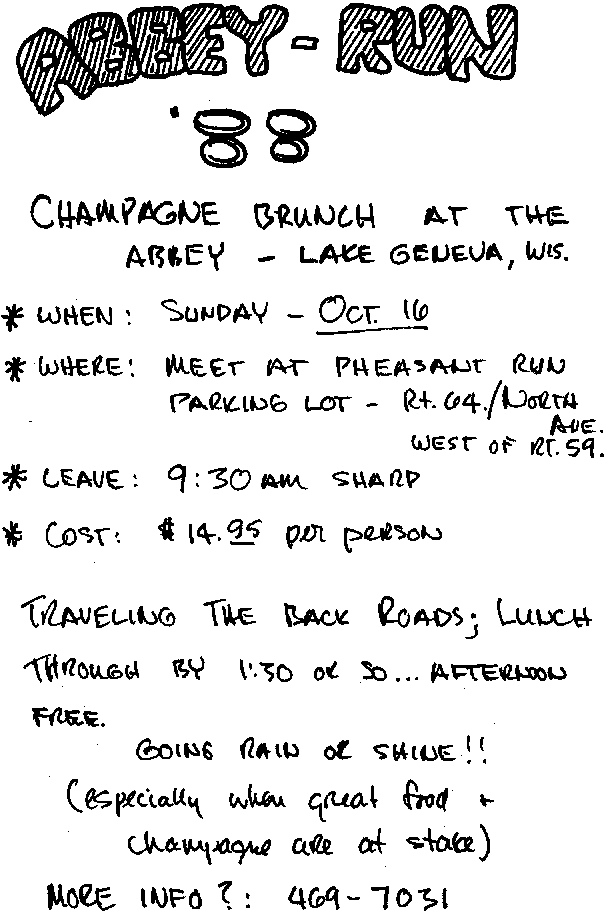 ABBEY-RUN
'88
CHAMPAGNE BRUNCH AT THE
ABBEY - LAKE GENEVA, WIS.
* WHEN: SUNDAY - OCT. 16
* WHERE: MEET AT PHEASANT RUN
PARKING LOT - Rt. 64./NORTH
AVE.
WEST OF RT. 59.
* LEAVE: 9:30 AM SHARP
* COST: $14.95 per person
TRAVELING THE BACK ROADS; LUNCH
THROUGH BY 1:30 OR SO... AFTERNOON
FREE.
GOING RAIN OR SHINE!!
(especially when great food +
champagne are at stake)
MORE INFO?: 469-7031